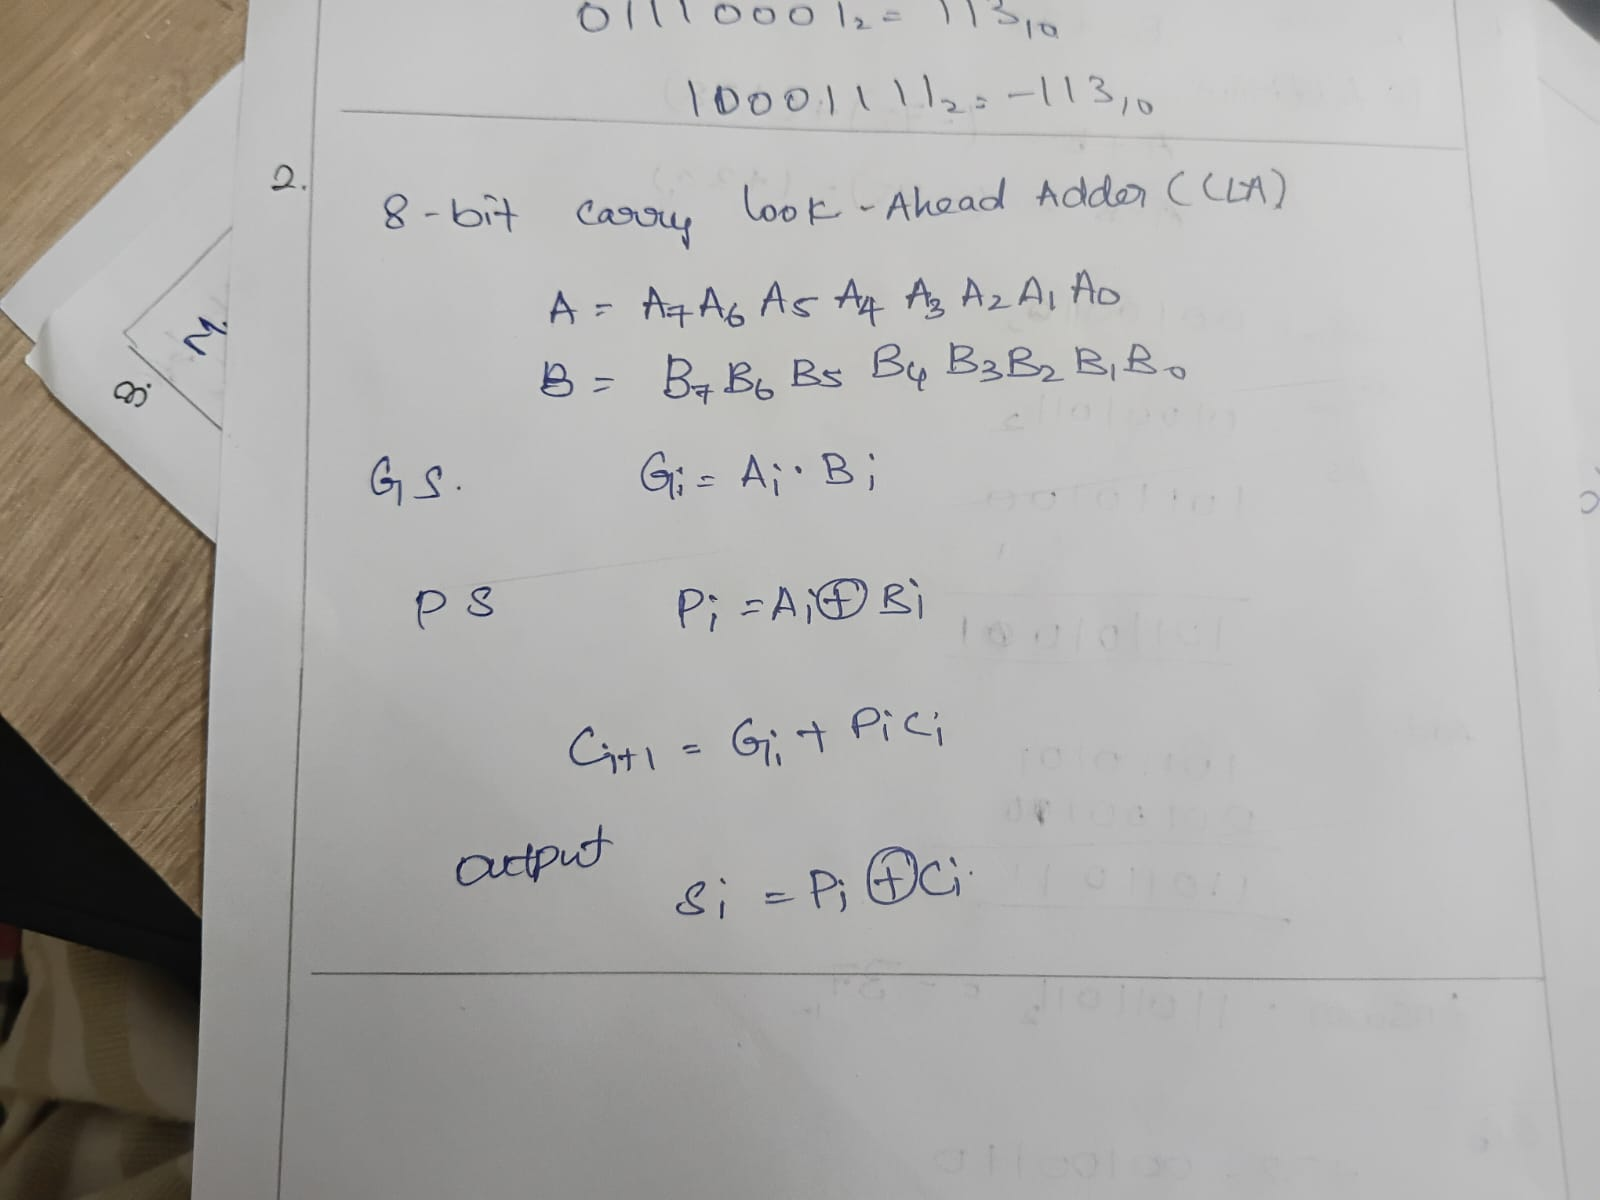 01110001₂ = 113₁₀
10001111₂ = -113₁₀
2.
8-bit carry look-Ahead Adder (CLA)
A = A₇ A₆ A₅ A₄ A₃ A₂ A₁ A₀
B = B₇ B₆ B₅ B₄ B₃ B₂ B₁ B₀
GS. Gᵢ = Aᵢ · Bᵢ
PS Pᵢ = Aᵢ ⊕ Bᵢ
Cᵢ₊₁ = Gᵢ + PᵢCᵢ
output
Sᵢ = Pᵢ ⊕ Cᵢ
8.